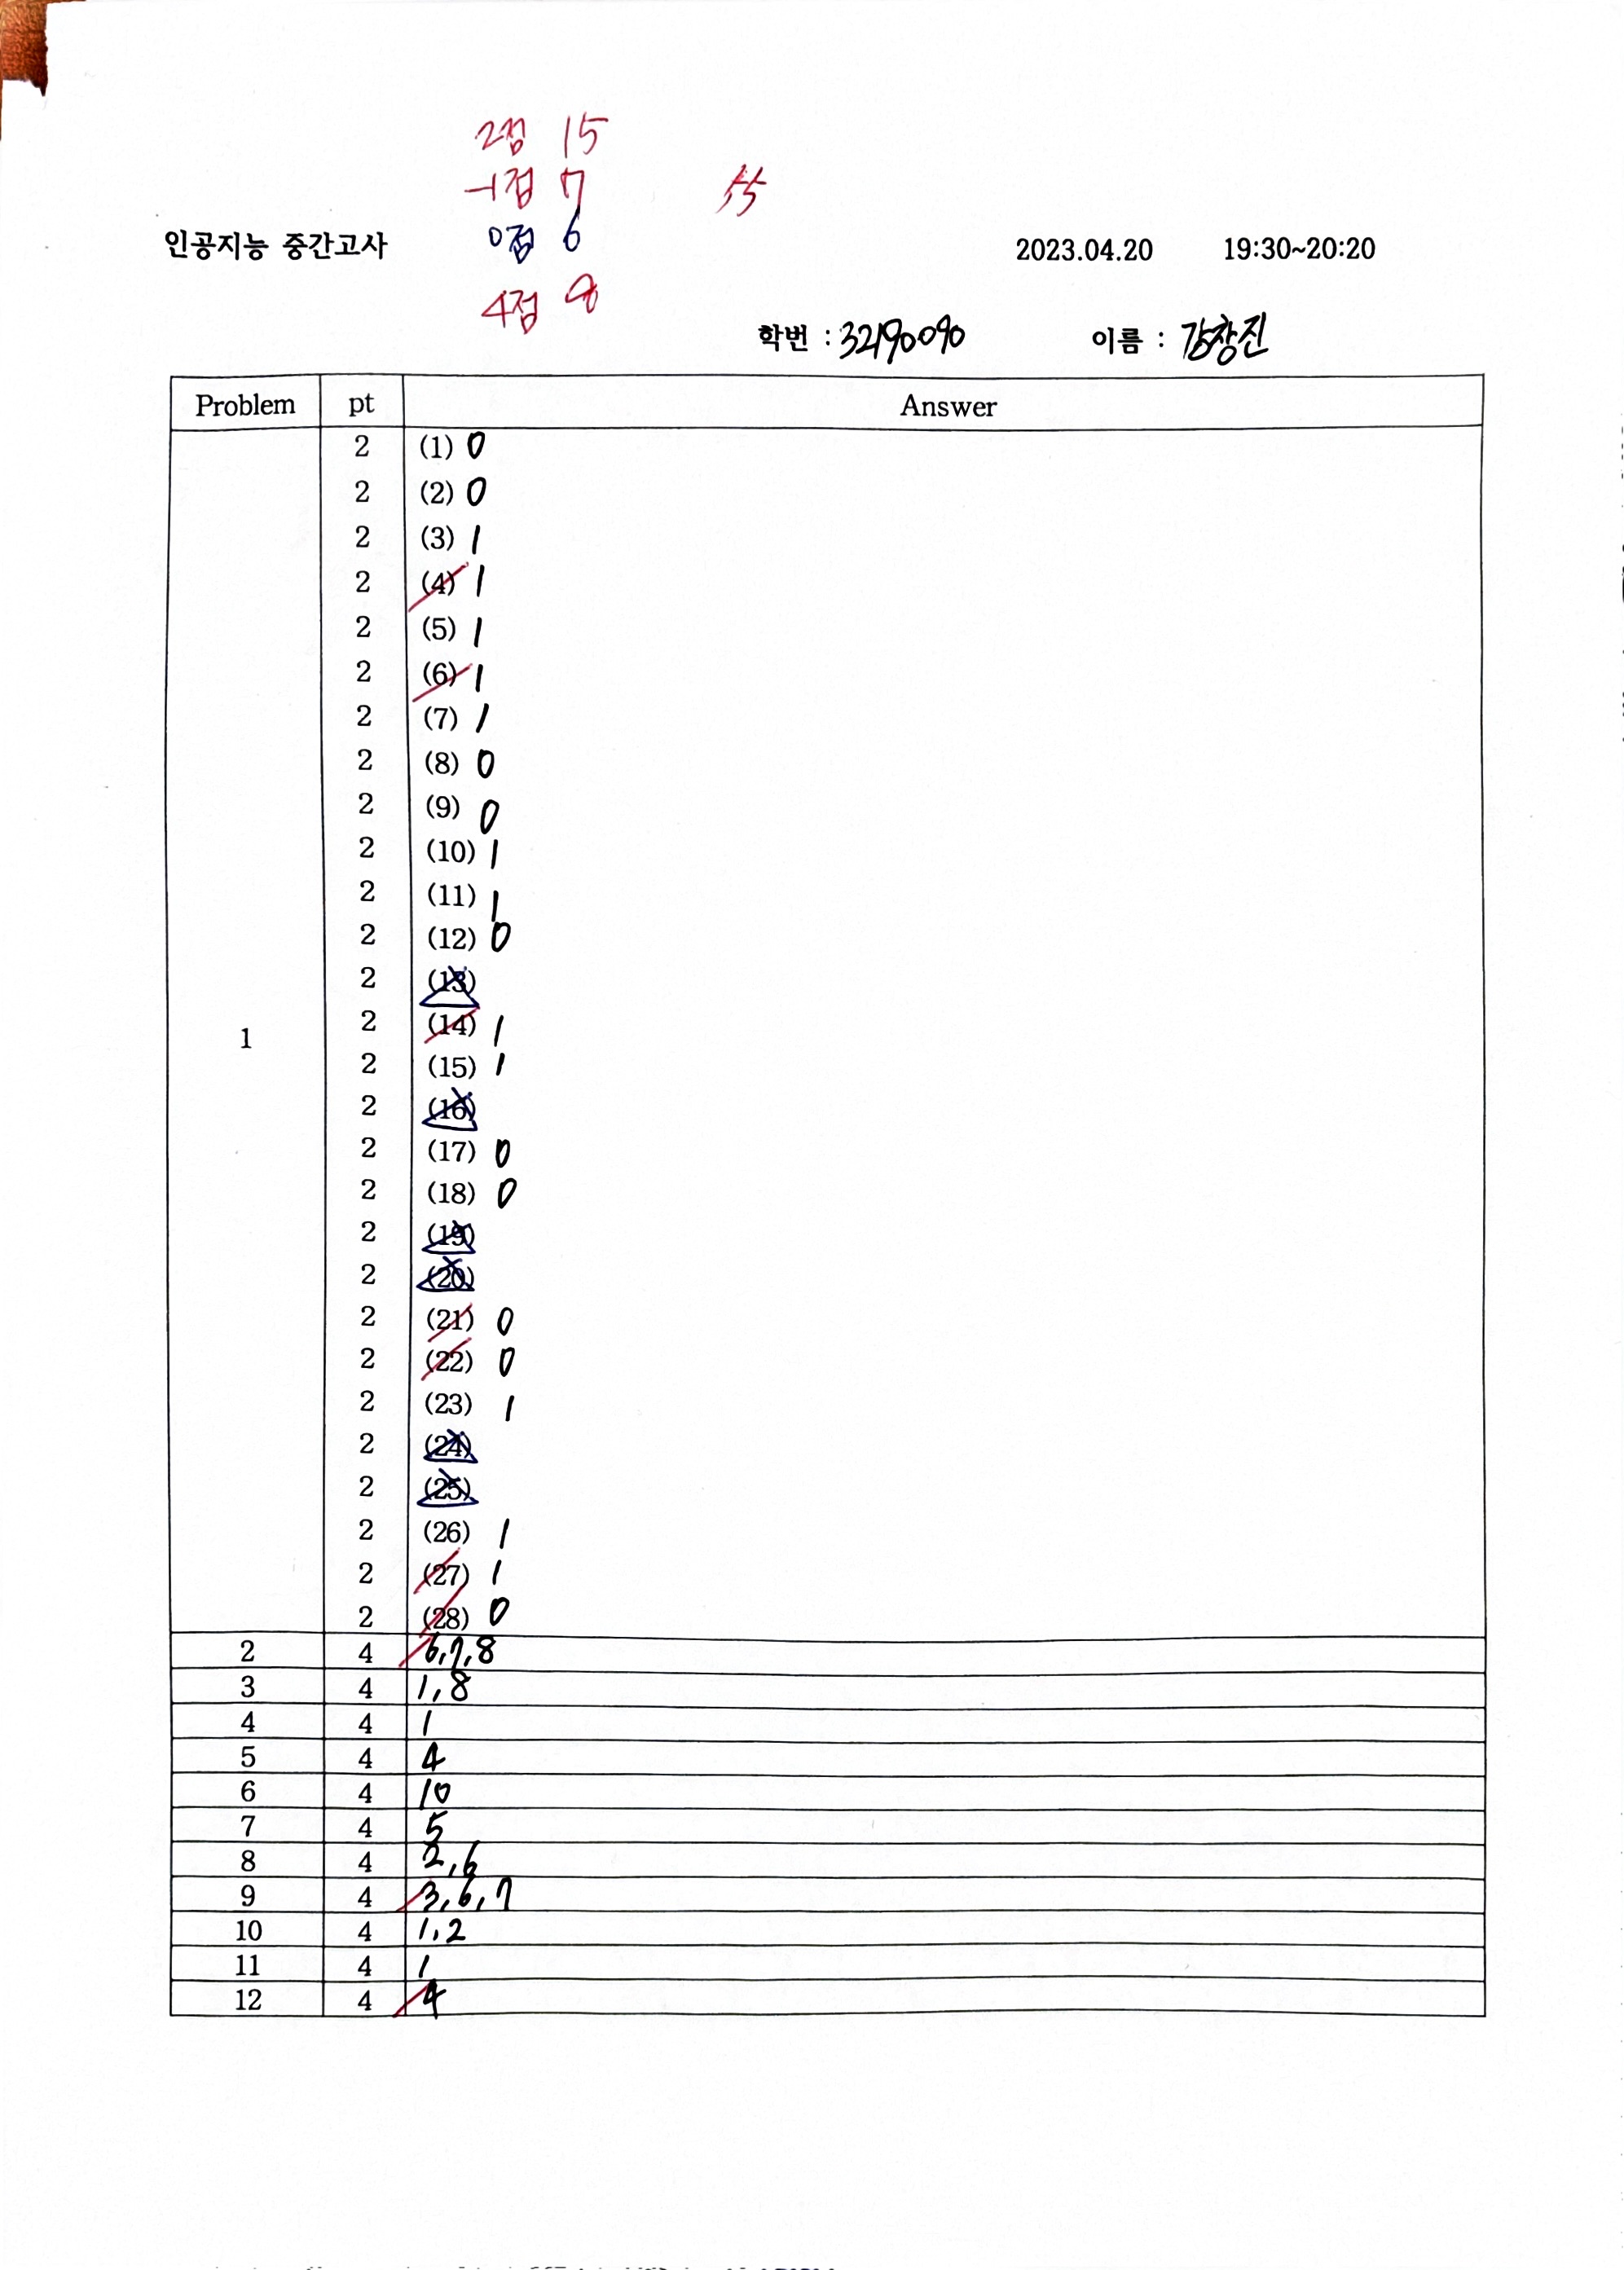 2점 15
-1점 7
55
0점 6
인공지능 중간고사
2023.04.20 19:30~20:20
4점 8
학번 : 32190090 이름 : 강창진
Problem pt Answer
2 (1) 0
2 (2) 0
2 (3) 1
2 (4) 1
2 (5) 1
2 (6) 1
2 (7) 1
2 (8) 0
2 (9) 0
2 (10) 1
2 (11) 1
2 (12) 0
2 (13)
2 (14) 1
1
2 (15) 1
2 (16)
2 (17) 0
2 (18) 0
2 (19)
2 (20)
2 (21) 0
2 (22) 0
2 (23) 1
2 (24)
2 (25)
2 (26) 1
2 (27) 1
2 (28) 0
2 4 6,7,8
3 4 1,8
4 4 1
5 4 4
6 4 10
7 4 5
8 4 2,6
9 4 3,6,7
10 4 1,2
11 4 1
12 4 4